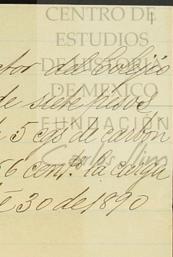 CENTRO DE
ESTUDIOS
DE HISTORIA
DE MEXICO
FUNDACIÓN
Carlos Slim
ctor del Colegio
de siete pesos
5 cgs de carbon
56 cent.s la carga
30 de 1890